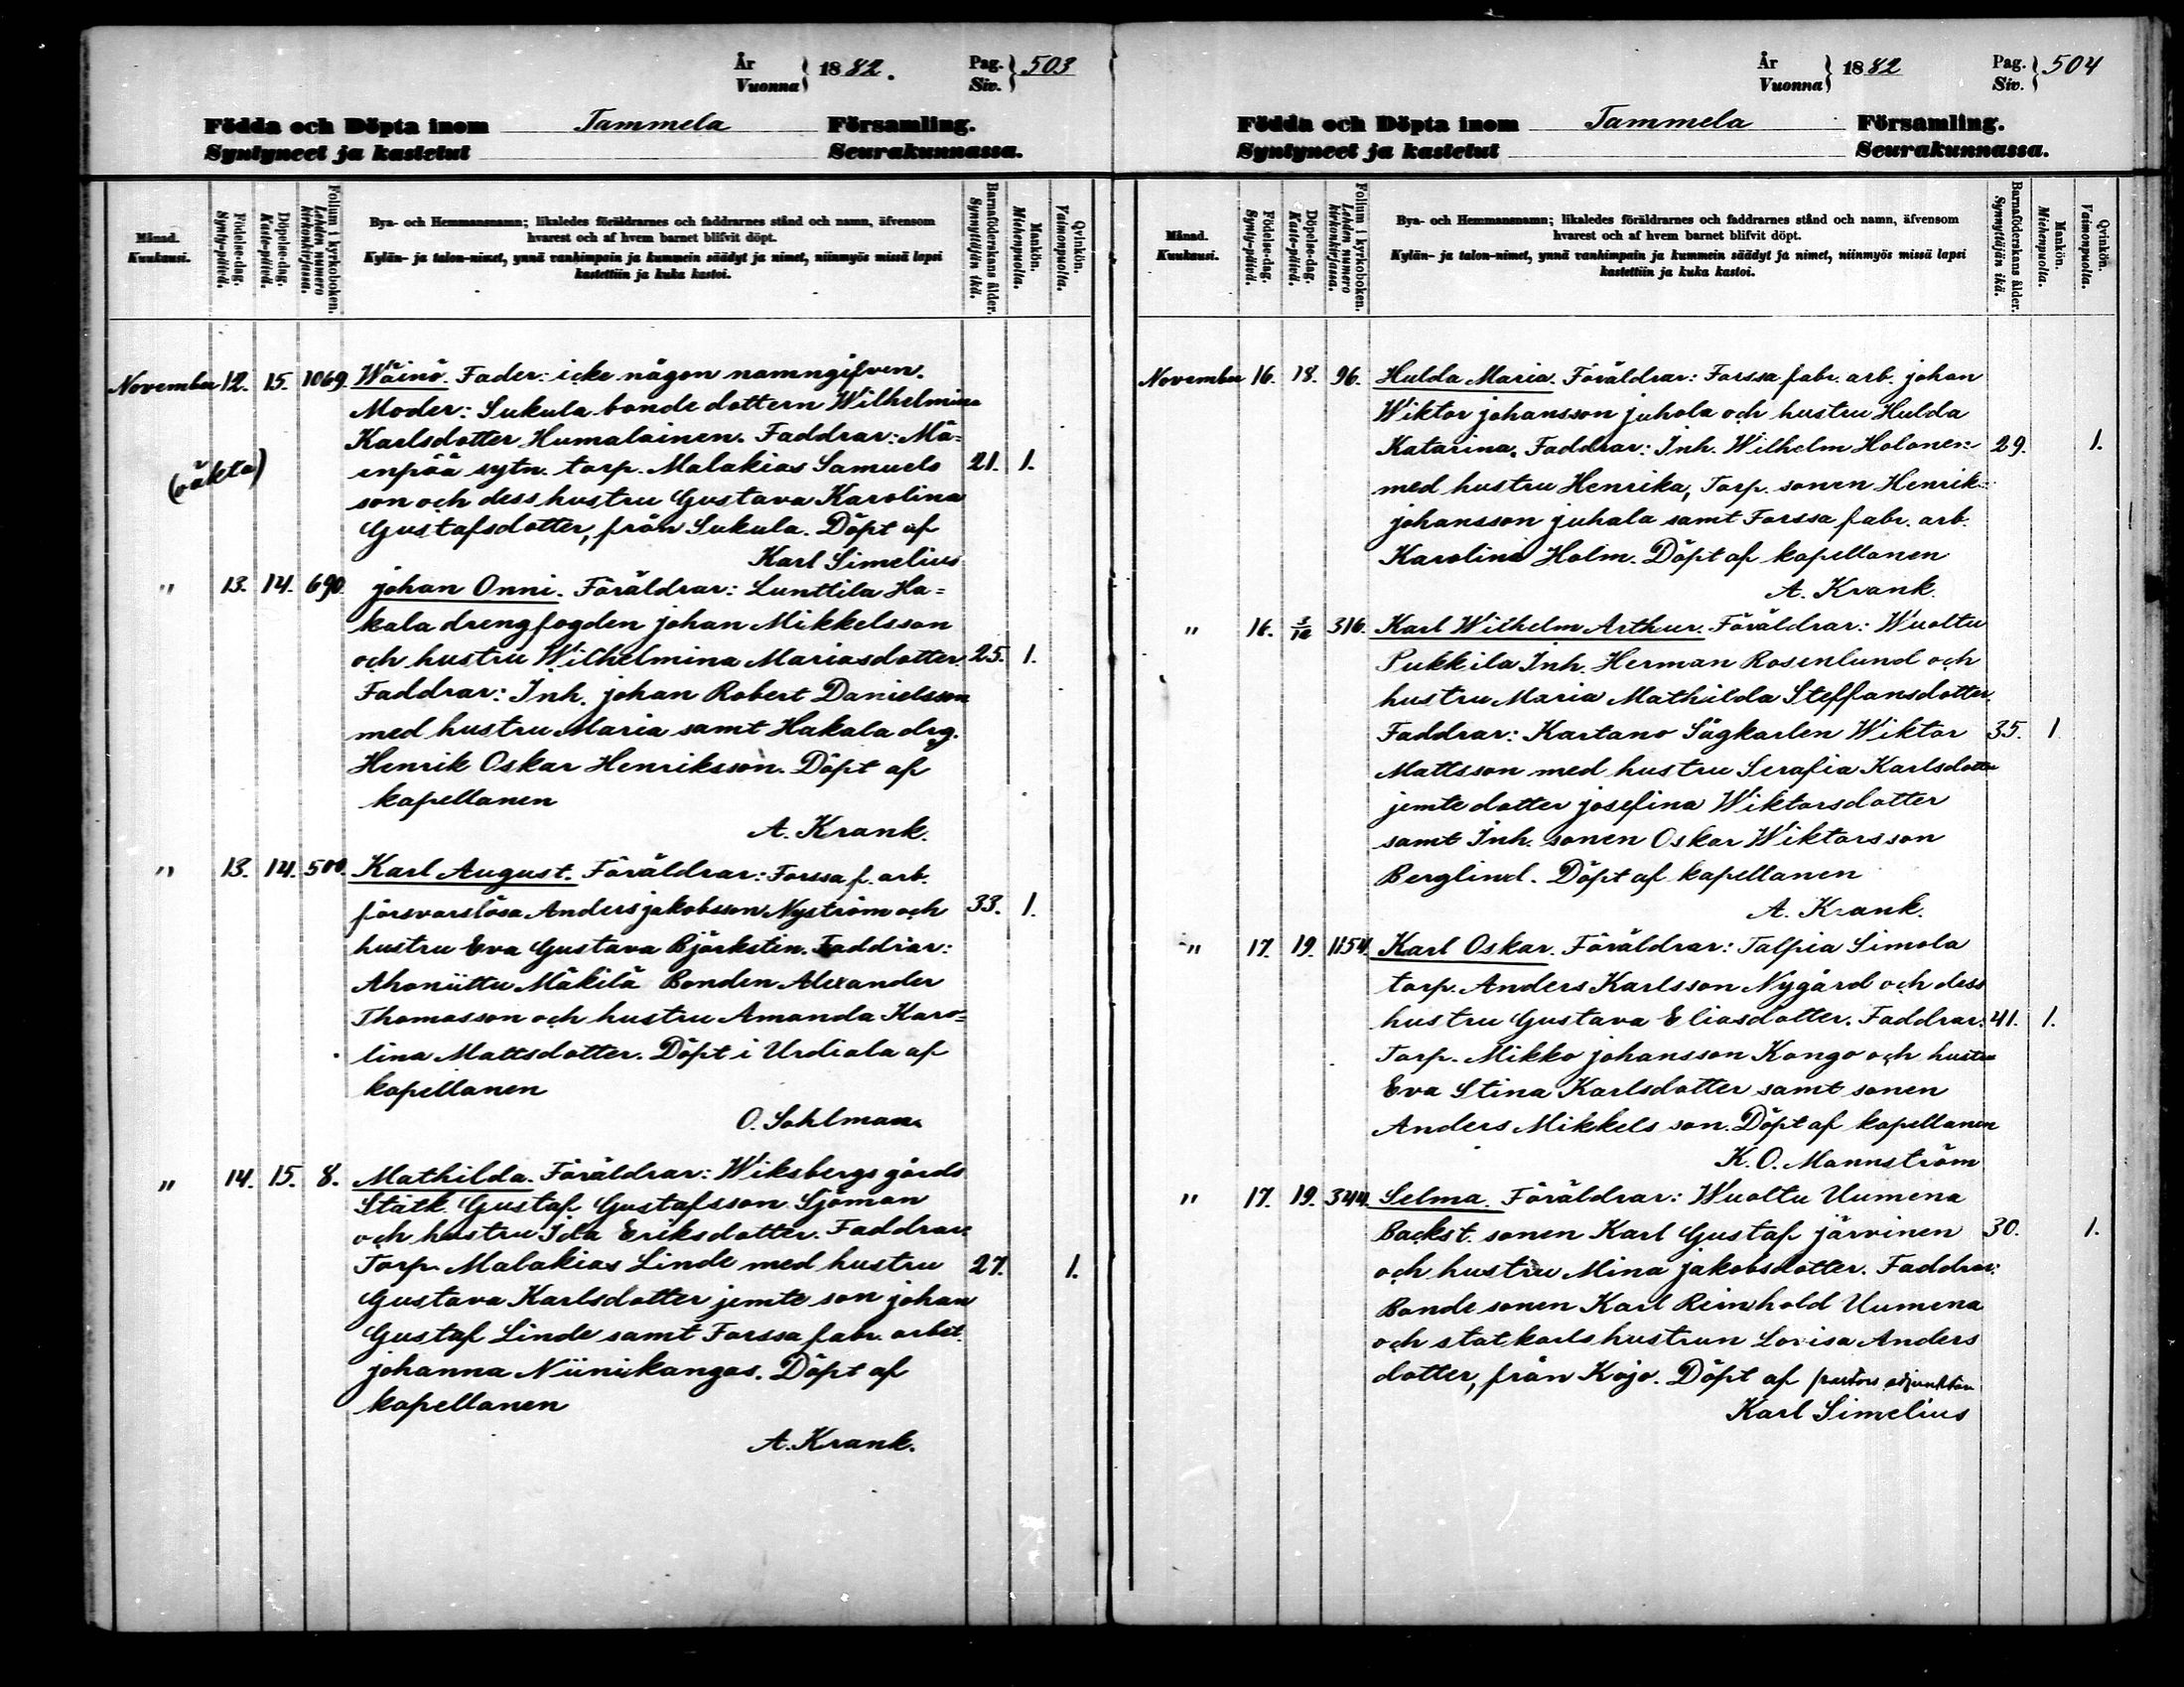 År
Vuonna } 1882.
Pag.
Siv. } 503
Födda och Döpta inom Tammela Församling.
Syntyneet ja kastetut Seurakunnassa.
Månad.
Kuukausi.
Födelse-dag.
Synty-päivä.
Döpelse-dag.
Kaste-päivä.
Folium i kyrkoboken.
Lehden numero
kirkonkirjassa.
Bya- och Hemmansnamn; likaledes föräldrarnes och faddrarnes stånd och namn, äfvensom
hvarest och af hvem barnet blifvit döpt.
Kylän- ja talon-nimet, ynnä vanhimpain ja kummein säädyt ja nimet, niinmyös missä lapsi
kastettiin ja kuka kastoi.
Barnaföderskans ålder.
Synnyttäjän ikä.
Mankön.
Miehenpuolia.
Qvinkön.
Vaimonpuolia.
November 12. 15. 1069. Wäinö. Fader: icke någon namngifven.
Moder: Sukula bonde dottern Wilhelmina
Karlsdotter Humalainen. Faddrar: Mä=
(oäkta) enpää sytn. torp. Malakias Samuels 21. 1.
son och dess hustru Gustava Karolina
Gustafsdotter, från Sukula. Döpt af
Karl Simelius
" 13. 14. 690. johan Onni. Föräldrar: Lunttila Ha=
kala drengfogden johan Mikkelsson
och hustru Wilhelmina Mariasdotter 25. 1.
Faddrar: Inh. johan Robert Danielsson
med hustru Maria samt Hakala drg.
Henrik Oskar Henriksson. Döpt af
kapellanen
A. Krank.
" 13. 14. 500. Karl August. Föräldrar: Forssa f. arb.
försvarslösa Anders jakobsson Nyström och 33. 1.
hustru Eva Gustava Björkstin. Faddrar:
Ahoniittu Mäkilä Bonden Alexander
Thomasson och hustru Amanda Karo=
lina Mattsdotter. Döpt i Urdiala af
kapellanen
O. Sohlman
" 14. 15. 8. Mathilda. Föräldrar: Wiksbergs gårds
Statk. Gustaf Gustafsson Sjöman
och hustru Ida Eriksdotter. Faddrar:
Torp. Malakias Linde med hustru 27. 1.
Gustava Karlsdotter jemte son johan
Gustaf Linde samt Forssa fabr. arbet.
johanna Niinikangas. Döpt af
kapellanen
A. Krank.
År
Vuonna } 1882
Pag.
Siv. } 504
Födda och Döpta inom Tammela Församling.
Syntyneet ja kastetut Seurakunnassa.
Månad.
Kuukausi.
Födelse-dag.
Synty-päivä.
Döpelse-dag.
Kaste-päivä.
Folium i kyrkoboken.
Lehden numero
kirkonkirjassa.
Bya- och Hemmansnamn; likaledes föräldrarnes och faddrarnes stånd och namn, äfvensom
hvarest och af hvem barnet blifvit döpt.
Kylän- ja talon-nimet, ynnä vanhimpain ja kummein säädyt ja nimet, niinmyös missä lapsi
kastettiin ja kuka kastoi.
Barnaföderskans ålder.
Synnyttäjän ikä.
Mankön.
Miehenpuolia.
Qvinkön.
Vaimonpuolia.
November 16. 18. 96. Hulda Maria. Föräldrar: Forssa fabr. arb. johan
Wiktor johansson juhola och hustru Hulda
Katarina. Faddrar: Inh. Wilhelm Holonen 29. 1.
med hustru Henrika, Torp. sonen Henrik
johansson juhala samt Forssa fabr. arb.
Karolina Holm. Döpt af kapellanen
A. Krank.
" 16. 316. Karl Wilhelm Arthur. Föräldrar: Wuoltu
Pukkila Inh. Herman Rosenlund och
hustru Maria Mathilda Steffansdotter.
Faddrar: Kartano Sågkarlen Wiktor 35. 1
Mattsson med hustru Serafia Karlsdotter
jemte dotter josefina Wiktorsdotter
samt Inh. sonen Oskar Wiktorsson
Berglind. Döpt af kapellanen
A. Krank.
" 17. 19. 1154. Karl Oskar. Föräldrar: Talpia Simola
torp. Anders Karlsson Nygård och dess
hustru Gustava Eliasdotter. Faddrar: 41. 1.
Torp. Mikko johansson Kongo och hustru
Eva Stina Karlsdotter samt sonen
Anders Mikkels son. Döpt af kapellanen
K. O. Mannström
" 17. 19. 344. Selma. Föräldrar: Wuoltu Uumena
Backst. sonen Karl Gustaf järvinen 30. 1.
och hustru Mina jakobsdotter. Faddrar:
Bonde sonen Karl Reinhold Uumena
och statkarls hustrun Lovisa Anders
dotter, från Kojo. Döpt af pastors adjunkten
Karl Simelius